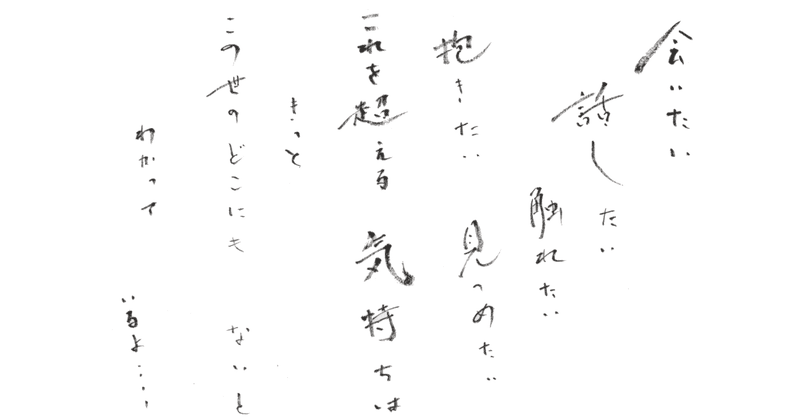 会いたい
話したい
触れたい
抱きたい
見つめたい
これを超える 気持ちは
きっと
この世のどこにも ないと
わかって
いるよ・・・・